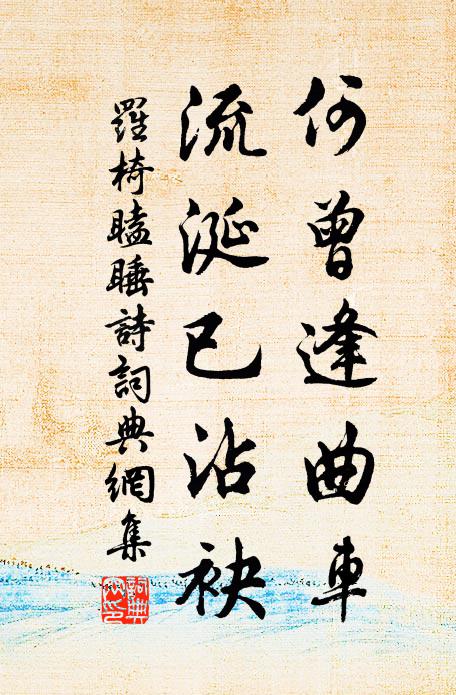 何曾逢曲車
流涎已沾袂
羅椅瞌睡詩詞典網集